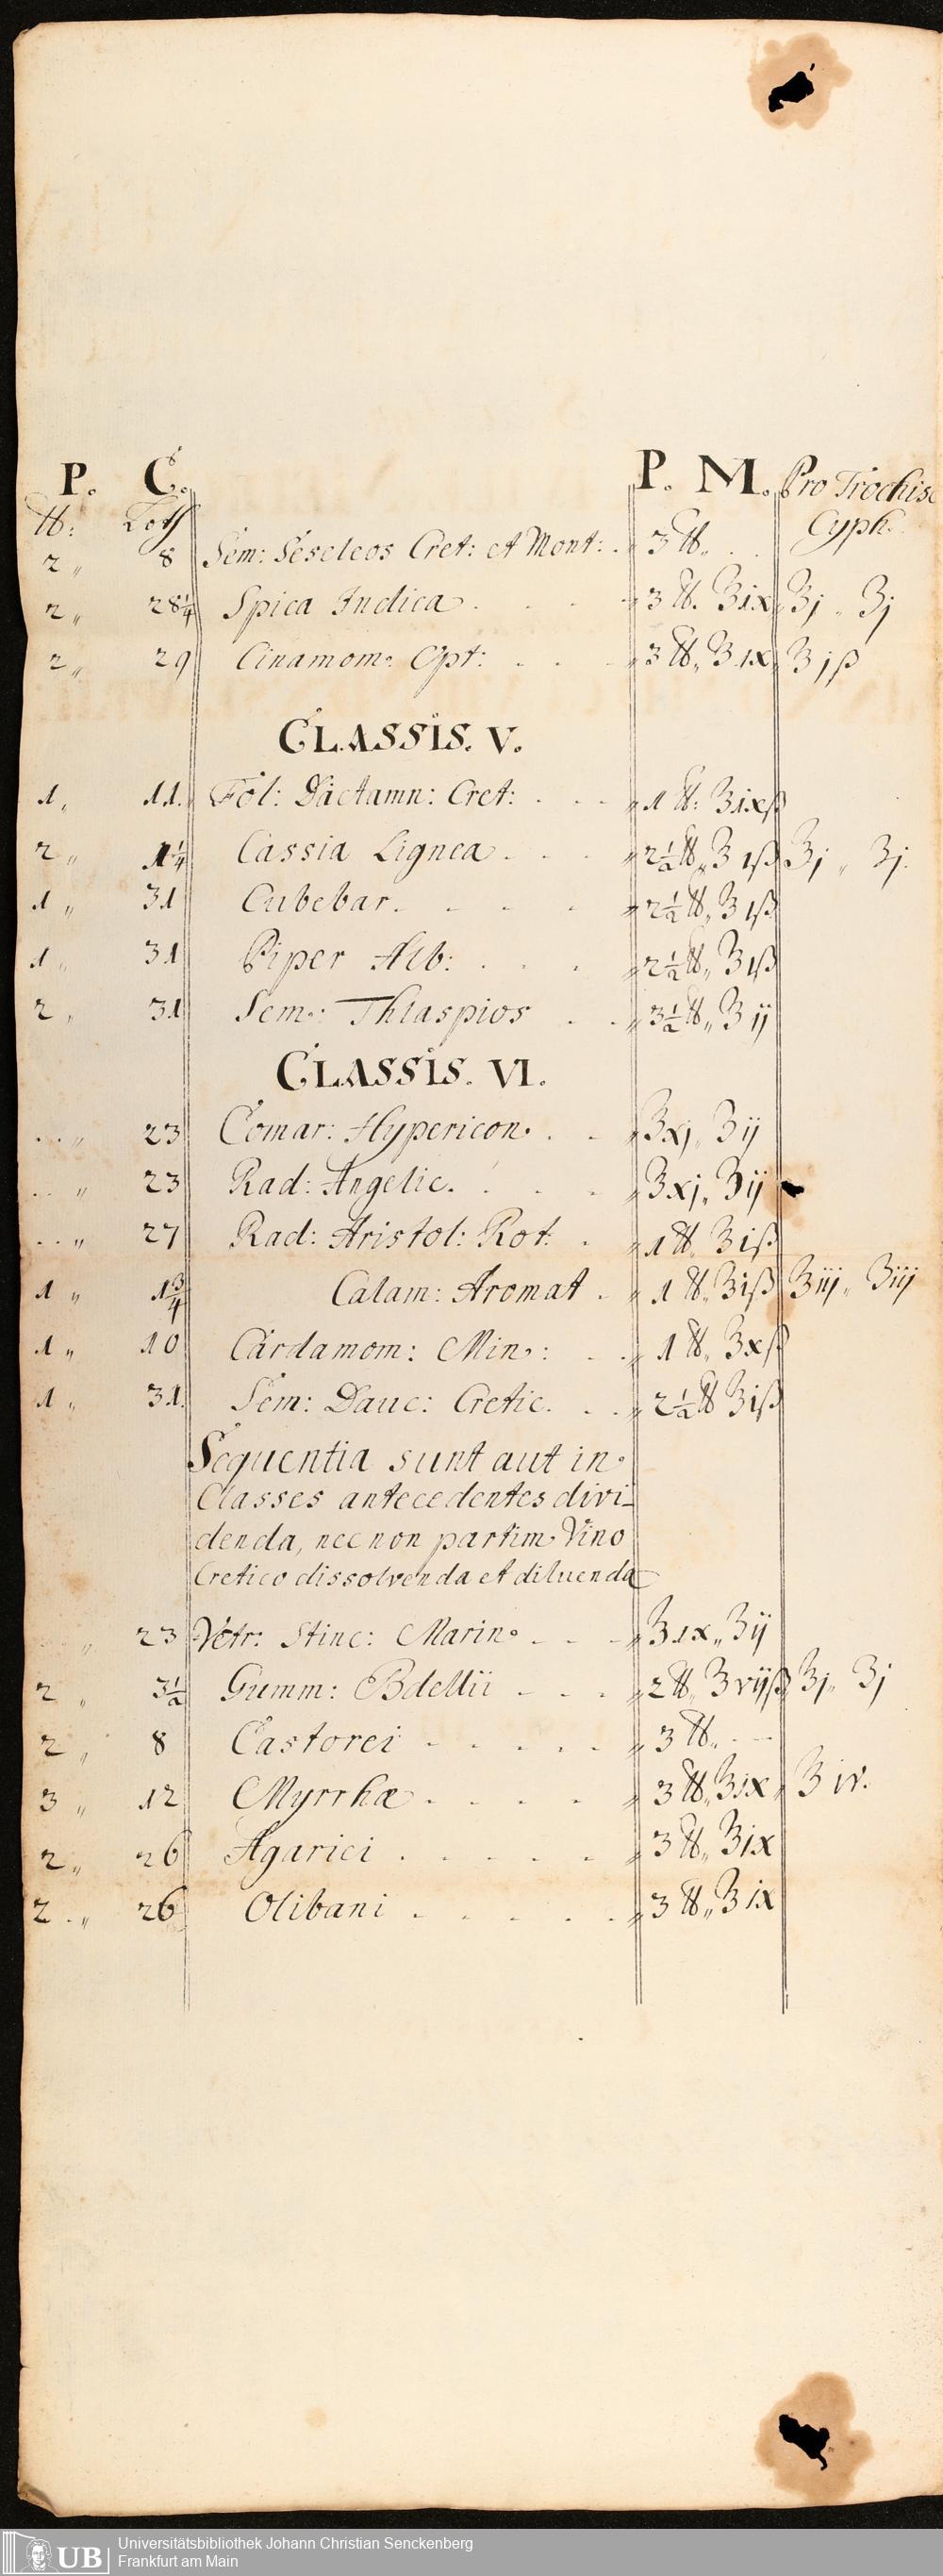 P. C. P. M. Pro Trochisc
℔: Loth Cyph.
2 „ 8 Sem: Seseleos Cret: et Mont: . 3 ℔. . .
2 „ 28¼ Spica Indica . . . . 3 ℔. ℥ix ℥j „ ʒj
2 „ 29 Cinamom: Opt: . . . 3 ℔„ ℥ix ℥jß
CLASSIS. V.
1 „ 11. Fol: Dictamn: Cret: . . . 1 ℔: ℥ixß
2 „ 1¼ Cassia Lignea . . . 2½ ℔„ ℥ıß ℥j „ ʒj.
1 „ 31 Cubebar. . . . . 2½ ℔„ ℥ıß
1 „ 31 Piper Alb: . . . 2½ ℔„ ℥ıß
2 „ 31 Sem: Thlaspios . . 3½ ℔„ ℥ij
CLASSIS. VI.
. . „ 23 Comar: Hypericon . . ℥xj„ ʒij
. . „ 23 Rad: Angelic. . . . ℥xj„ ʒij
. . „ 27 Rad: Aristol: Rot. . 1 ℔„ ℥iß
1 „ 1¾ Calam: Aromat . 1 ℔„ ℥iß ℥iij „ ʒiij
1 „ 10 Cardamom: Min: . . 1 ℔„ ℥xß
1 „ 31. Sem: Dauc: Cretic. . . 2½ ℔ ℥iß
Sequentia sunt aut in
Classes antecedentes divi-
denda, nec non partim Vino
Cretico dissolvenda et diluenda
„ 23 Vetr: Stinc: Marin. - - - ℥ıx„ ʒij
2 „ 3½ Gumm: Bdellii - - . 2 ℔„ ℥vijß ℥j„ ʒj
2 „ 8 Castorei - - . . . 3 ℔„ - -
3 „ 12 Myrrhæ . . . . 3 ℔„ ℥ıx ℥iv.
2 „ 26 Agarici . . . . . 3 ℔„ ℥ix
2 . „ 26 Olibani . . . . . 3 ℔„ ℥ix
UB
Universitätsbibliothek Johann Christian Senckenberg
Frankfurt am Main